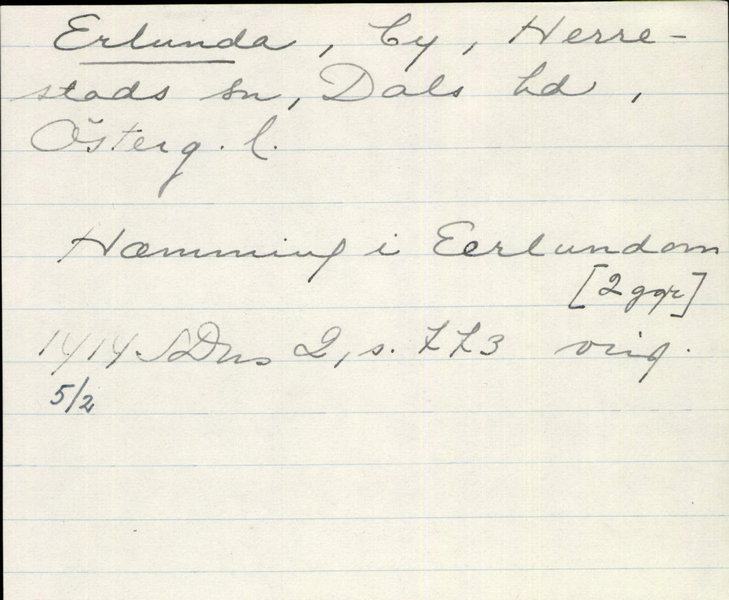 Erlunda, by, Herre-
stads sn, Dals hd,
Österg. l.
Hæmming i Eerlundom
[2 ggr]
1414 SDns 2, s. 773 orig.
5/2